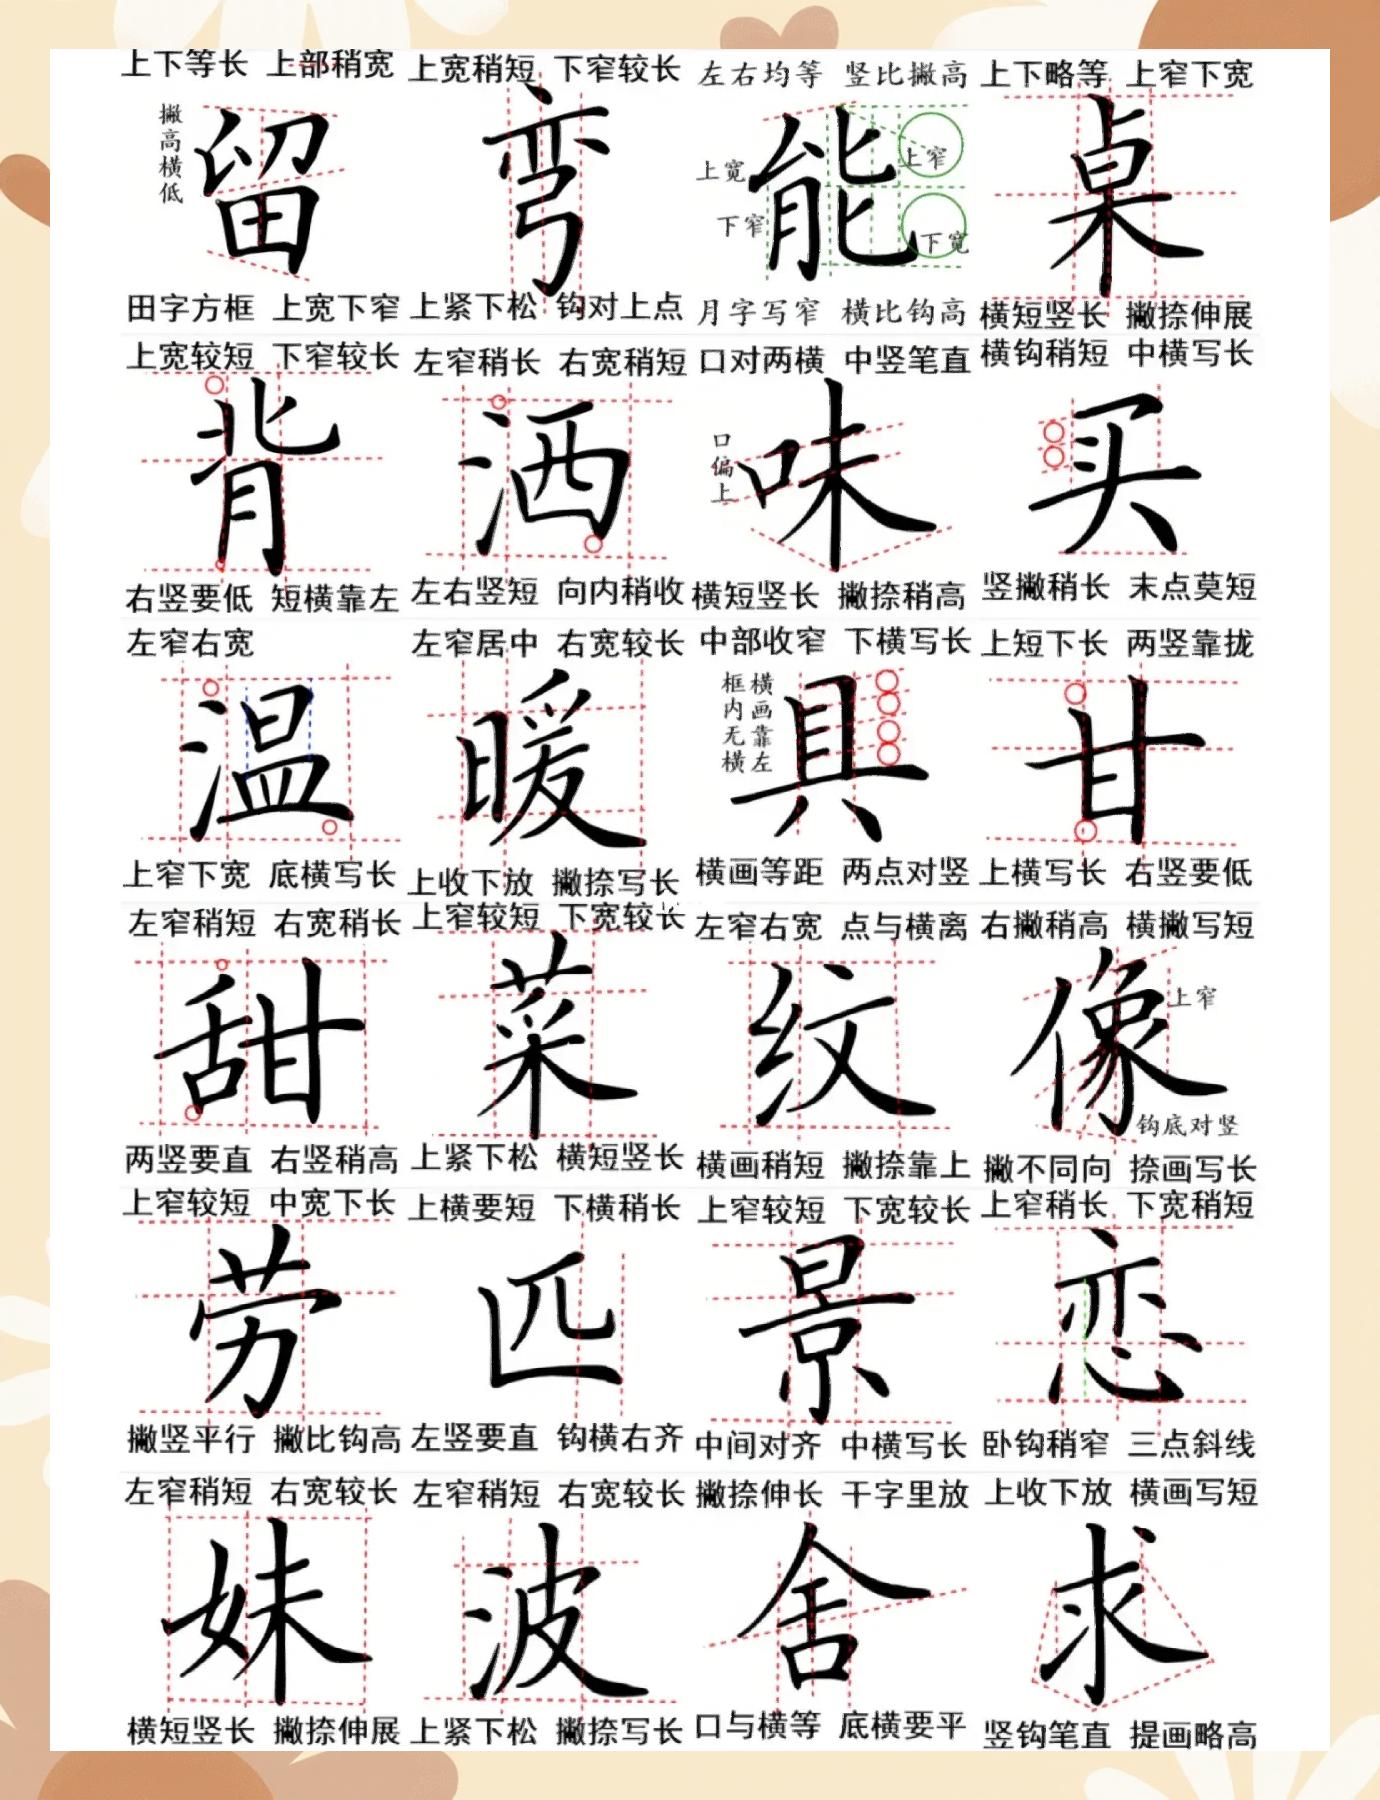 上下等长 上部稍宽 上宽稍短 下窄较长 左右均等 竖比撇高 上下略等 上窄下宽
撇高横低
留 弯 能 桌
上宽
上窄
下窄
下宽
田字方框 上宽下窄 上紧下松 钩对上点 月字写窄 横比钩高 横短竖长 撇捺伸展
上宽较短 下窄较长 左窄稍长 右宽稍短 口对两横 中竖笔直 横钩稍短 中横写长
口偏上
背 洒 味 买
右竖要低 短横靠左 左右竖短 向内稍收 横短竖长 撇捺稍高 竖撇稍长 末点莫短
左窄右宽 左窄居中 右宽较长 中部收窄 下横写长 上短下长 两竖靠拢
框内无横
横画靠左
温 暖 具 甘
上窄下宽 底横写长 上收下放 撇捺写长 横画等距 两点对竖 上横写长 右竖要低
左窄稍短 右宽稍长 上窄较短 下宽较长 左窄右宽 点与横离 右撇稍高 横撇写短
甜 菜 纹 像
上窄
钩底对竖
两竖要直 右竖稍高 上紧下松 横短竖长 横画稍短 撇捺靠上 撇不同向 捺画写长
上窄较短 中宽下长 上横要短 下横稍长 上窄较短 下宽较长 上窄稍长 下宽稍短
劳 匹 景 恋
撇竖平行 撇比钩高 左竖要直 钩横右齐 中间对齐 中横写长 卧钩稍窄 三点斜线
左窄稍短 右宽较长 左窄稍短 右宽较长 撇捺伸长 干字里放 上收下放 横画写短
妹 波 舍 求
横短竖长 撇捺伸展 上紧下松 撇捺写长 口与横等 底横要平 竖钩笔直 提画略高